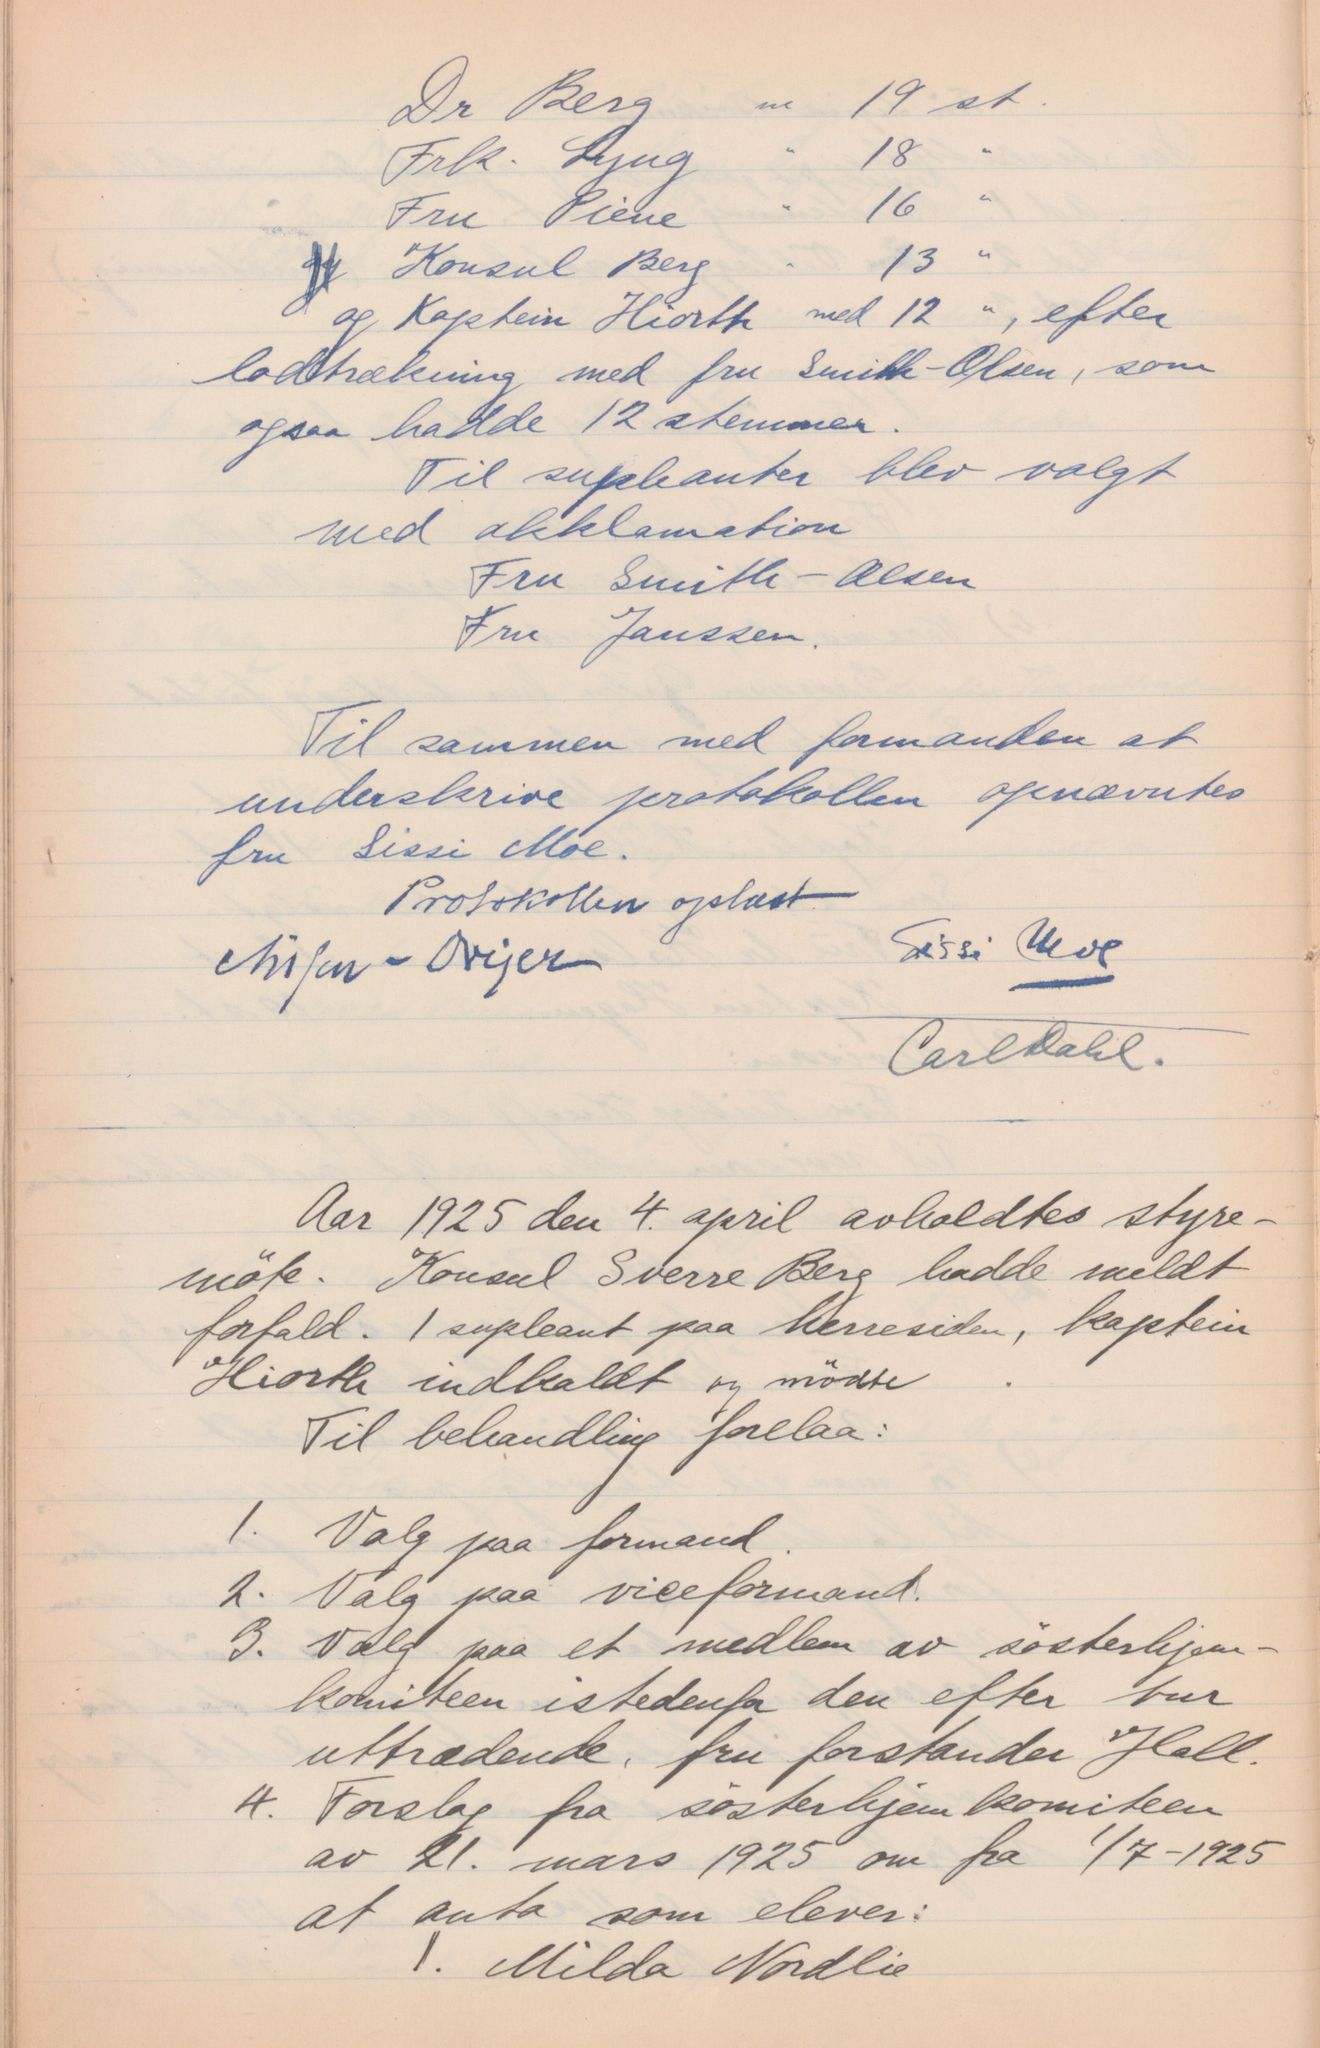 Dr Berg " 19 st.
Frk. Lyng " 18 "
Fru Piene " 16 "
Konsul Berg " 13 "
og Kaptein Hiorth med 12 ", efter
lodtrækning med fru Smith-Olsen, som
ogsaa hadde 12 stemmer.
Til supleanter blev valgt
med akklamation
Fru Smith-Olsen
Fru Janssen.
Til sammen med formanden at
underskrive protokollen opnævntes
fru Sissi Moe.
Protokollen oplæst
Sissi Moe
Carl Dahl.
Aar 1925 den 4. april avholdtes styre-
möte. Konsul Sverre Berg hadde meldt
forfald. 1 supleant paa herresiden, kaptein
Hiorth indkaldt og mödte.
Til behandling forelaa:
1. Valg paa formand.
2. Valg paa viceformand.
3. Valg paa et medlem av sösterhjem-
komiteen istedenfor den efter tur
uttrædende, fru forstander Hall.
4. Forslag fra sösterhjemkomiteen
av 21. mars 1925 om fra 1/7-1925
at anta som elever:
1. Milda Nordlie